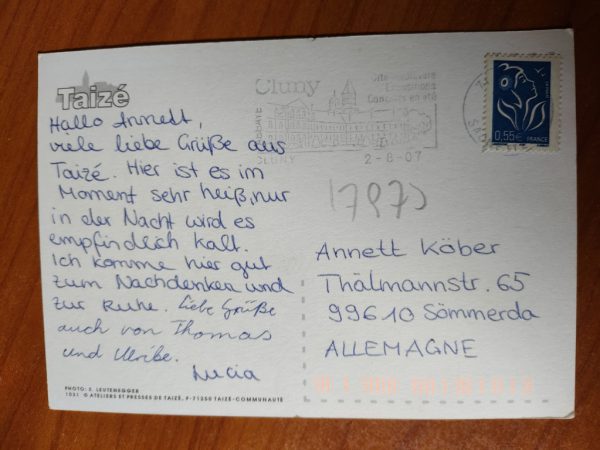 Taizé
Hallo Annett,
viele liebe Grüße aus
Taizé. Hier ist es im
Moment sehr heiß, nur
in der Nacht wird es
empfindlich kalt.
Ich komme hier gut
zum Nachdenken und
zur Ruhe. Liebe Grüße
auch von Thomas
und Ulrike.
Lucia
PHOTO: S. LEUTENEGGER
1031 © ATELIERS ET PRESSES DE TAIZÉ, F-71250 TAIZÉ-COMMUNAUTÉ
Cluny
Expositions
Concerts en été
CLUNY
2-8-07
0,55€ FRANCE
17973
Annett Köber
Thälmannstr. 65
99610 Sömmerda
ALLEMAGNE